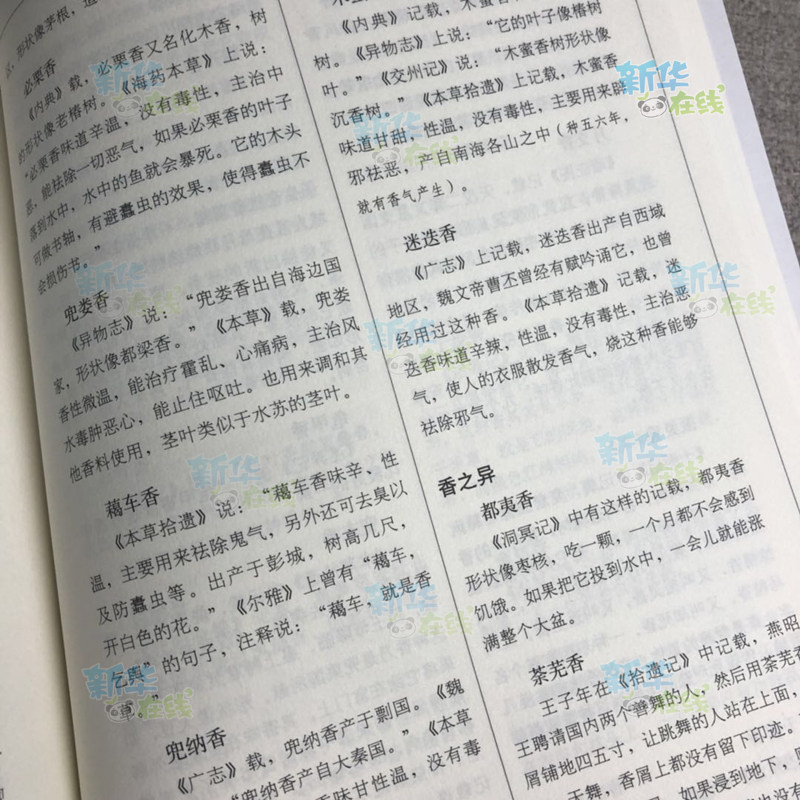 ，形状像茅根，道
必栗香
《内典》载，必栗香又名化木香，树
的形状像老椿树。《海药本草》上说：
“必栗香味道辛温，没有毒性，主治中
恶，能祛除一切恶气，如果必栗香的叶子
落到水中，水中的鱼就会暴死。它的木头
可做书轴，有避蠹虫的效果，使得蠹虫不
会损伤书。”
兜娄香
《异物志》说：“兜娄香出自海边国
家，形状像都梁香。”《本草》载，兜娄
香性微温，能治疗霍乱、心痛病，主治风
水毒肿恶心，能止住呕吐。也用来调和其
他香料使用，茎叶类似于水苏的茎叶。
藕车香
《本草拾遗》说：“藕车香味辛、性
温，主要用来祛除鬼气，另外还可去臭以
及防蠹虫等。出产于彭城，树高几尺，
开白色的花。”《尔雅》上曾有“藕车，
乞舆”的句子，注释说：“藕车，就是香
草。”
兜纳香
《广志》载，兜纳香产于剽国。《魏
“兜纳香产自大秦国。”《本草
香味甘性温，没有毒
《内典》记载，木蜜香
《异物志》上说：“它的叶子像椿树
树。”《交州记》说：“木蜜香树形状像
叶。”《本草拾遗》上记载，木蜜香
沉香树。
味道甘甜，性温，没有毒性，主要用来辟
邪祛恶，产自南海各山之中（种五六年，
就有香气产生）。
迷迭香
《广志》上记载，迷迭香出产自西域
地区，魏文帝曹丕曾经有赋吟诵它，也曾
经用过这种香。《本草拾遗》记载，迷
迭香味道辛辣，性温，没有毒性，主治恶
气，使人的衣服散发香气，烧这种香能够
祛除邪气。
香之异
都夷香
《洞冥记》中有这样的记载，都夷香
形状像枣核，吃一颗，一个月都不会感到
饥饿。如果把它投到水中，一会儿就能涨
满整个大盆。
荼芜香
王子年在《拾遗记》中记载，燕昭
王聘请国内两个善舞的人，然后用荼芜香
屑铺地四五寸，让跳舞的人站在上面，
天舞，香屑上都没有留下印迹。
如果浸到地下，
新华在线
新华在线
新华在线
新华在线
新华在线
新华在线
新华在线
新华在线
新华在线
新华在线
新华在线